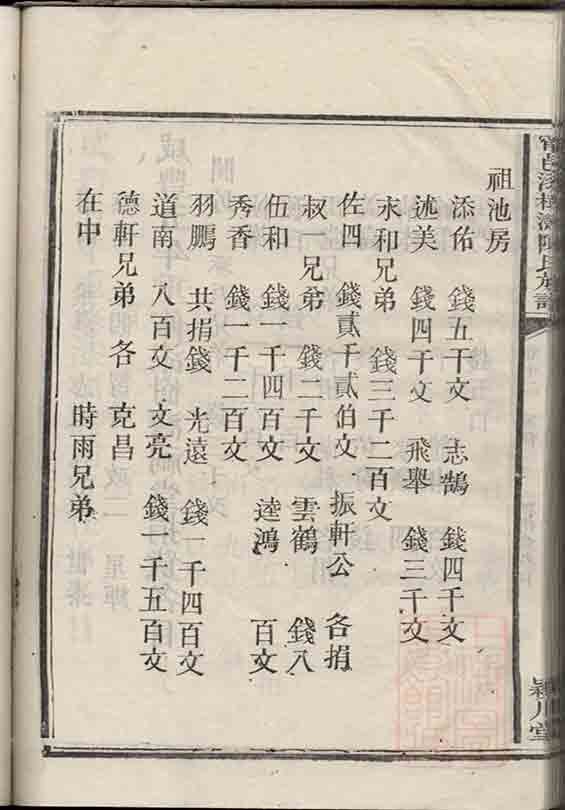 陳氏族譜
潁川堂
祖池房
添佑 錢五千文 志鵠 錢四千文
述美 錢四千文 飛舉 錢三千文
永和兄弟 錢三千二百文
佐四 錢貳千貳伯文 振軒公 各捐
叔一兄弟 錢二千文 雲鶴 錢八
伍和 錢一千四百文 逵鴻 百文
秀香 錢一千二百文
羽鵬 共捐錢 光遠 錢一千四百文
道南 八百文 文亮 錢一千五百文
德軒兄弟 各 克昌
在中 時雨兄弟